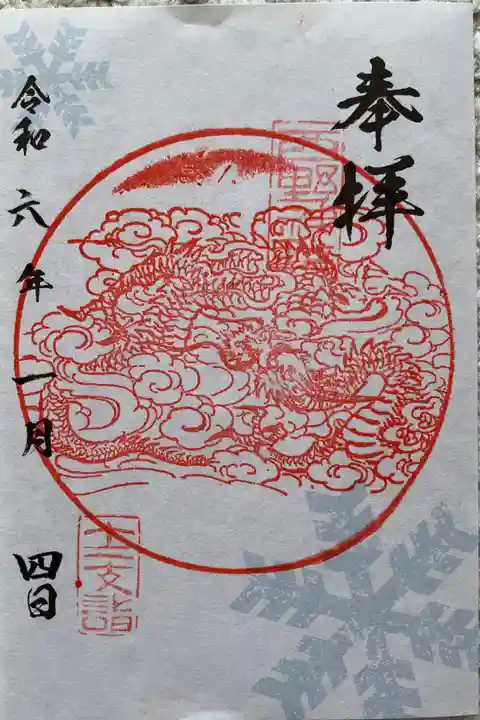 奉拝
西野
干支詣
令和六年一月四日